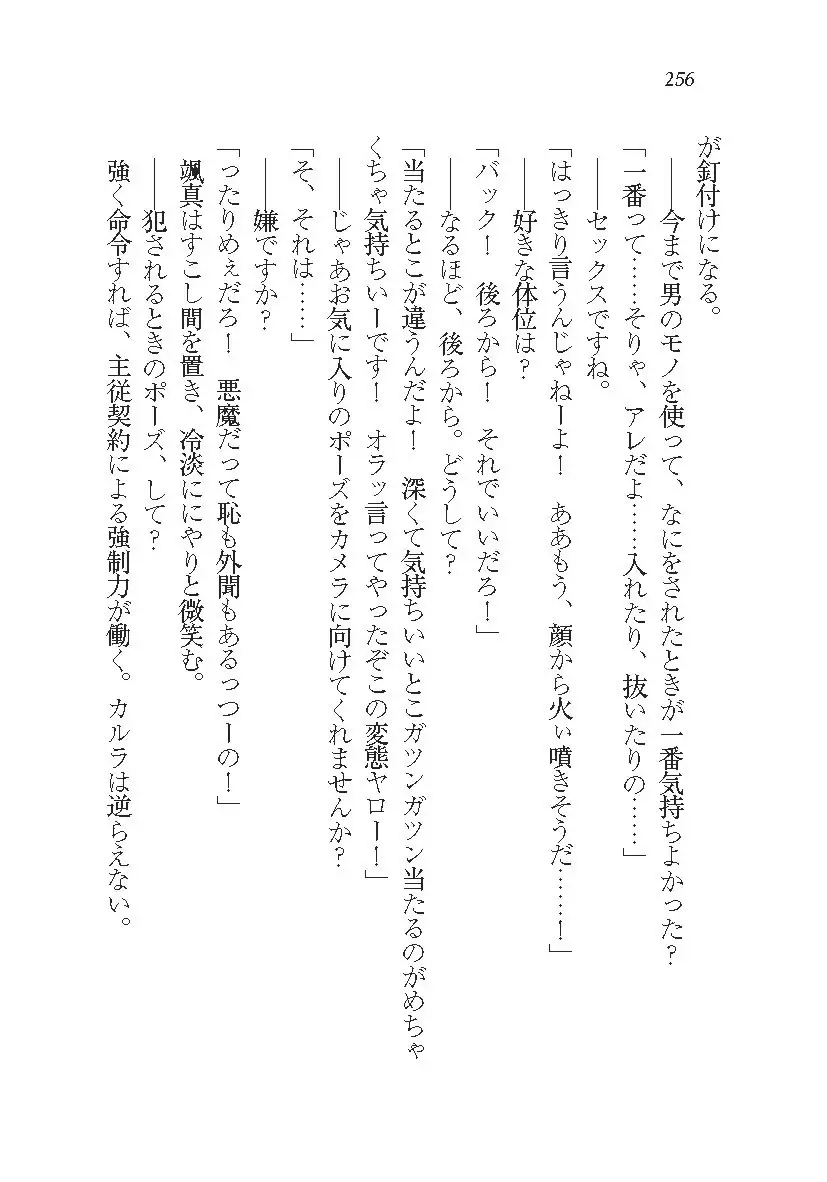 256
が釘付けになる。
――今まで男のモノを使って、なにをされたときが一番気持ちよかった？
「一番って……そりゃ、アレだよ……入れたり、抜いたりの……」
――セックスですね。
「はっきり言うんじゃねーよ！　ああもう、顔から火ぃ噴きそうだ………！」
――好きな体位は？
「バック！　後ろから！　それでいいだろ！」
――なるほど、後ろから。どうして？
「当たるとこが違うんだよ！　深くて気持ちいいとこガツンガツン当たるのがめちゃ
くちゃ気持ちいーです！　オラッ言ってやったぞこの変態ヤロー！」
――じゃあお気に入りのポーズをカメラに向けてくれませんか？
「そ、それは……」
――嫌ですか？
「ったりめぇだろ！　悪魔だって恥も外聞もあるっつーの！」
颯真はすこし間を置き、冷淡ににやりと微笑む。
――犯されるときのポーズ、して？
強く命令すれば、主従契約による強制力が働く。カルラは逆らえない。